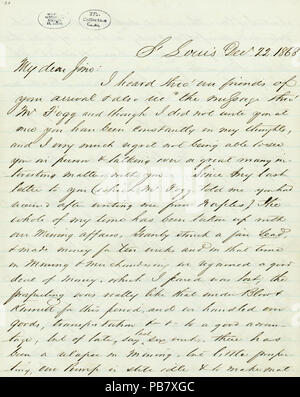 St Louis Dec 22 1868
My dear Jim:
I heard thro' our friends of
your arrival & also rec the message thro'
Mr Fogg and though I did not write you at
once you have been constantly in my thoughts,
and I very much regret not being able to see
you in person & talking over a great many in-
teresting matters with you. Since my last
letter to you (which Mr Fogg told me you had
after writing me from Naples) the
whole of my time has been taken up with
our Mining affairs. Granby struck a fine lead
& made money for ten weeks and in that time
in Mining & merchandise we regained a good
deal of money, which I feared was lost, the
prospecting was really like that under Blow &
Kennett for this period, and we handled our
goods, transportation &c to a good advan-
tage, but of late, say, six weeks, there has
been a relapse in Mining, but little prospec-
ting, our Pump is still idle & to make mat
alamy
PB7XGC